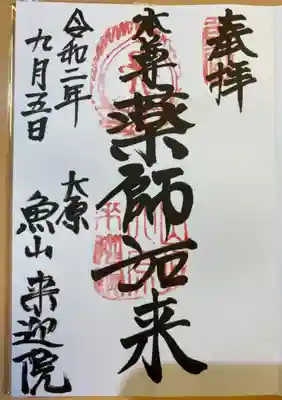 奉拝
本尊
薬師如来
令和二年
九月五日
大原
魚山 来迎院